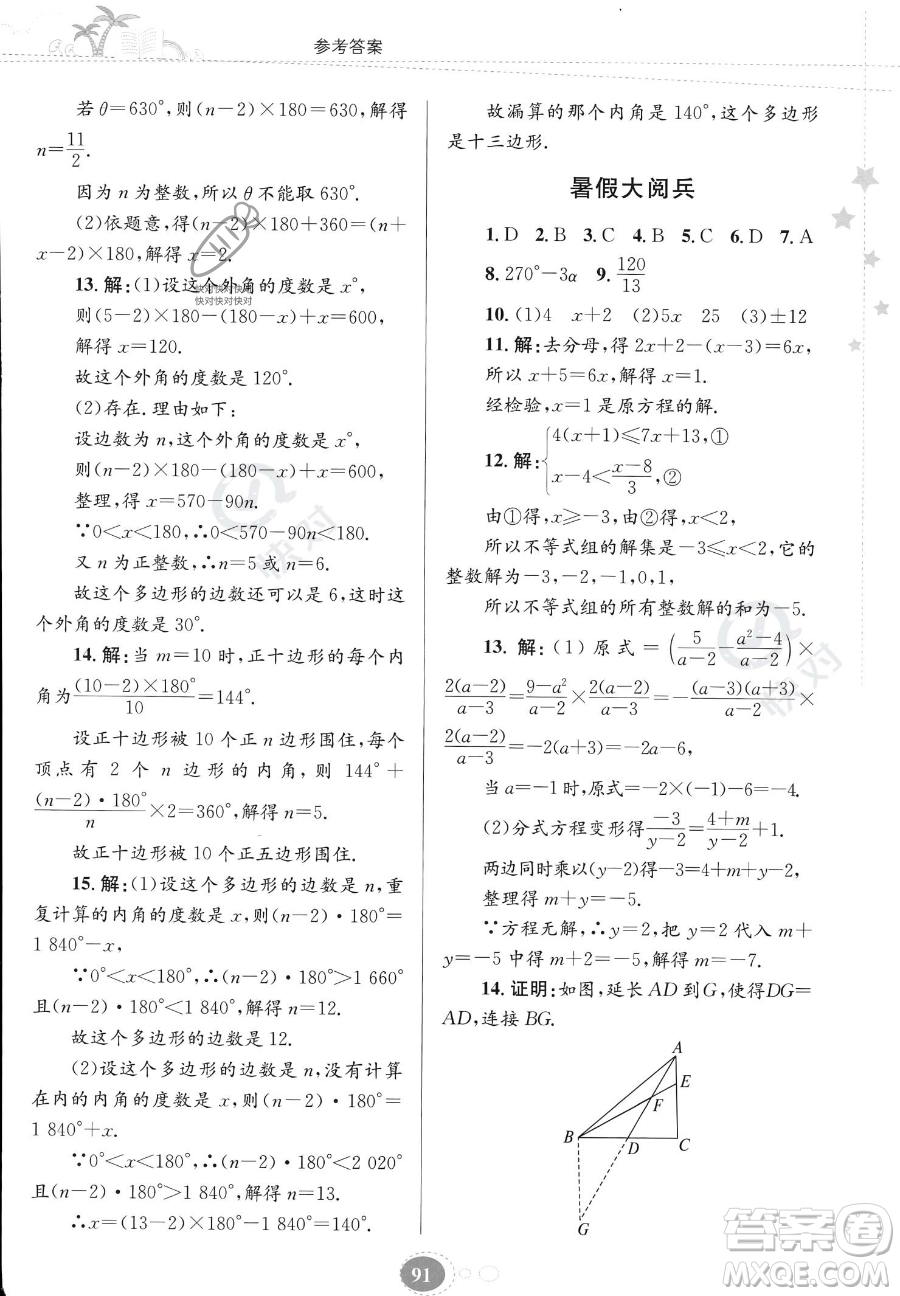 参考答案
若θ=630°,则(n-2)×180=630,解得
n=11/2.
因为 n 为整数,所以 θ 不能取 630°.
(2)依题意,得(n-2)×180+360=(n+
x-2)×180,解得 x=2.
13. 解:(1)设这个外角的度数是 x°,
则(5-2)×180-(180-x)+x=600,
解得 x=120.
故这个外角的度数是 120°.
(2)存在.理由如下:
设边数为 n,这个外角的度数是 x°,
则(n-2)×180-(180-x)+x=600,
整理,得 x=570-90n.
∵0<x<180,∴0<570-90n<180.
又 n 为正整数,∴n=5 或 n=6.
故这个多边形的边数还可以是 6,这时这
个外角的度数是 30°.
14. 解:当 m=10 时,正十边形的每个内
角为(10-2)×180°/10=144°.
设正十边形被 10 个正 n 边形围住,每个
顶点有 2 个 n 边形的内角,则 144°+
(n-2)·180°/n×2=360°,解得 n=5.
故正十边形被 10 个正五边形围住.
15. 解:(1)设这个多边形的边数是 n,重
复计算的内角的度数是 x,则(n-2)·180°=
1 840°-x,
∵0°<x<180°,∴(n-2)·180°>1 660°
且(n-2)·180°<1 840°,解得 n=12.
故这个多边形的边数是 12.
(2)设这个多边形的边数是 n,没有计算
在内的内角的度数是 x,则(n-2)·180°=
1 840°+x.
∵0°<x<180°,∴(n-2)·180°<2 020°
且(n-2)·180°>1 840°,解得 n=13.
∴x=(13-2)×180°-1 840°=140°.
故漏算的那个内角是 140°,这个多边形
是十三边形.
暑假大阅兵
1. D 2. B 3. C 4. B 5. C 6. D 7. A
8. 270°-3α 9. 120/13
10. (1)4 x+2 (2)5x 25 (3)±12
11. 解:去分母,得 2x+2-(x-3)=6x,
所以 x+5=6x,解得 x=1.
经检验,x=1 是原方程的解.
12. 解:{4(x+1)≤7x+13,①
x-4<(x-8)/3,②
由①得,x≥-3,由②得,x<2,
所以不等式组的解集是-3≤x<2,它的
整数解为-3,-2,-1,0,1,
所以不等式组的所有整数解的和为-5.
13. 解:(1) 原式=(5/(a-2)-(a²-4)/(a-2))×
2(a-2)/(a-3)=(9-a²)/(a-2)×2(a-2)/(a-3)=-(a-3)(a+3)/(a-2)×
2(a-2)/(a-3)=-2(a+3)=-2a-6,
当 a=-1 时,原式=-2×(-1)-6=-4.
(2)分式方程变形得-3/(y-2)=(4+m)/(y-2)+1.
两边同时乘以(y-2)得-3=4+m+y-2,
整理得 m+y=-5.
∵方程无解,∴y=2,把 y=2 代入 m+
y=-5 中得 m+2=-5,解得 m=-7.
14. 证明:如图,延长 AD 到 G,使得DG=
AD,连接 BG.
A
E
F
B D C
G
91
快对快对快对
快对快对快对
快对
快对
答案卷
MXQE.COM